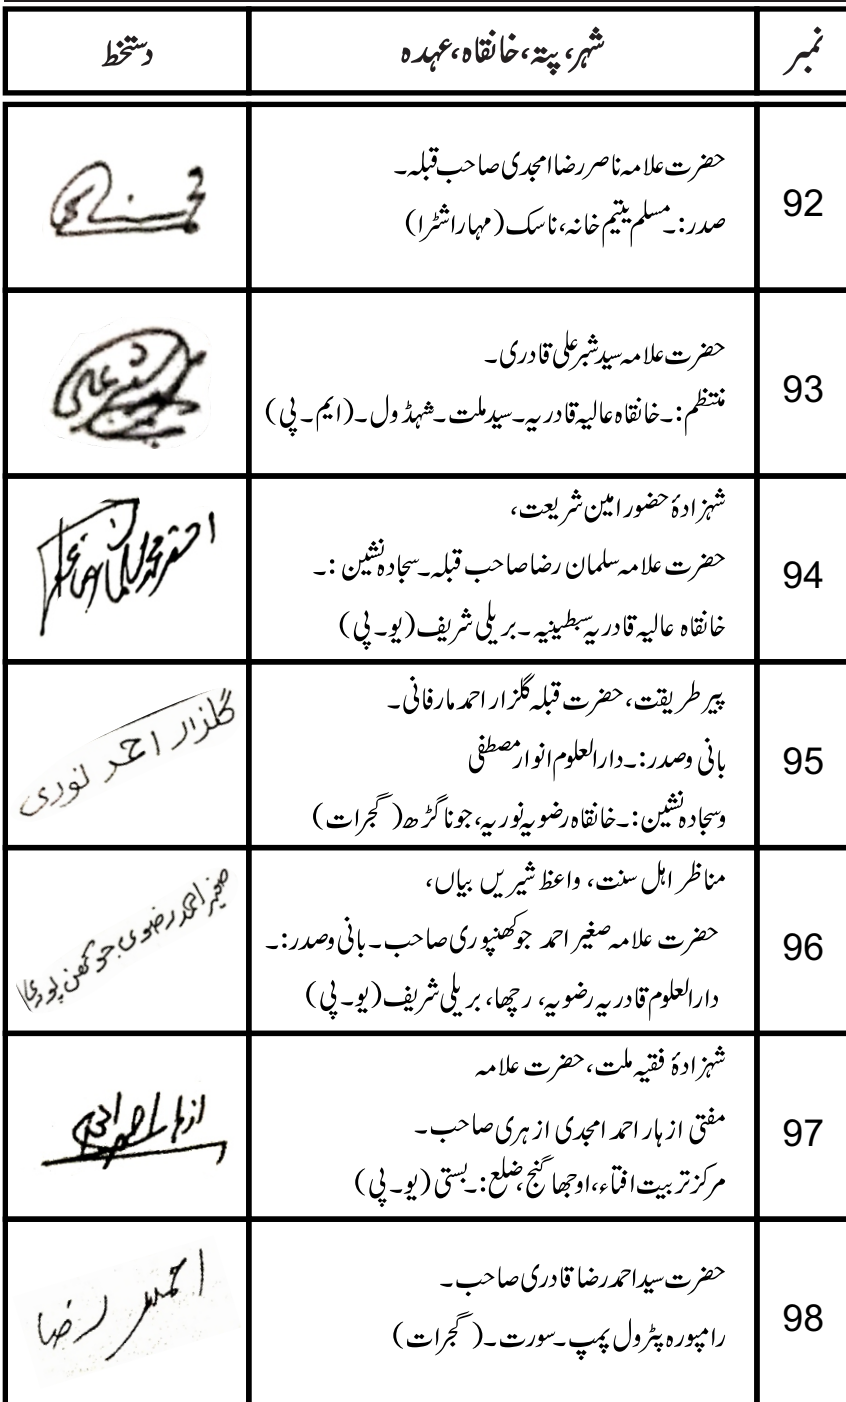 نمبر شہر، پتہ، خانقاہ، عہدہ دستخط
92
حضرت علامہ ناصر رضا امجدی صاحب قبلہ۔
صدر:۔ مسلم یتیم خانہ، ناسک (مہاراشٹرا)
93
حضرت علامہ سید شبر علی قادری۔
منتظم:۔ خانقاہ عالیہ قادریہ۔ سید ملت۔ شہڈول۔ (ایم۔ پی)
94
شہزادۂ حضور امین شریعت،
حضرت علامہ سلمان رضا صاحب قبلہ۔ سجادہ نشین :۔
خانقاہ عالیہ قادریہ سبطینیہ ۔ بریلی شریف (یو۔ پی)
95
پیر طریقت، حضرت قبلہ گلزار احمد مارفانی۔
بانی وصدر:۔ دارالعلوم انوار مصطفی
وسجادہ نشین :۔ خانقاہ رضویہ نوریہ، جوناگڑھ (گجرات)
گلزار احمد نوری
96
مناظر اہل سنت، واعظ شیریں بیاں،
حضرت علامہ صغیر احمد جوکھنپوری صاحب۔ بانی وصدر:۔
دارالعلوم قادریہ رضویہ، رچھا، بریلی شریف (یو۔ پی)
صغیر احمد رضوی جوکھن پوری
97
شہزادۂ فقیہ ملت، حضرت علامہ
مفتی ازہار احمد امجدی ازہری صاحب۔
مرکز تربیت افتاء، اوجھا گنج، ضلع:۔ بستی (یو۔ پی)
98
حضرت سید احمد رضا قادری صاحب۔
رامپورہ پٹرول پمپ۔ سورت۔ (گجرات)